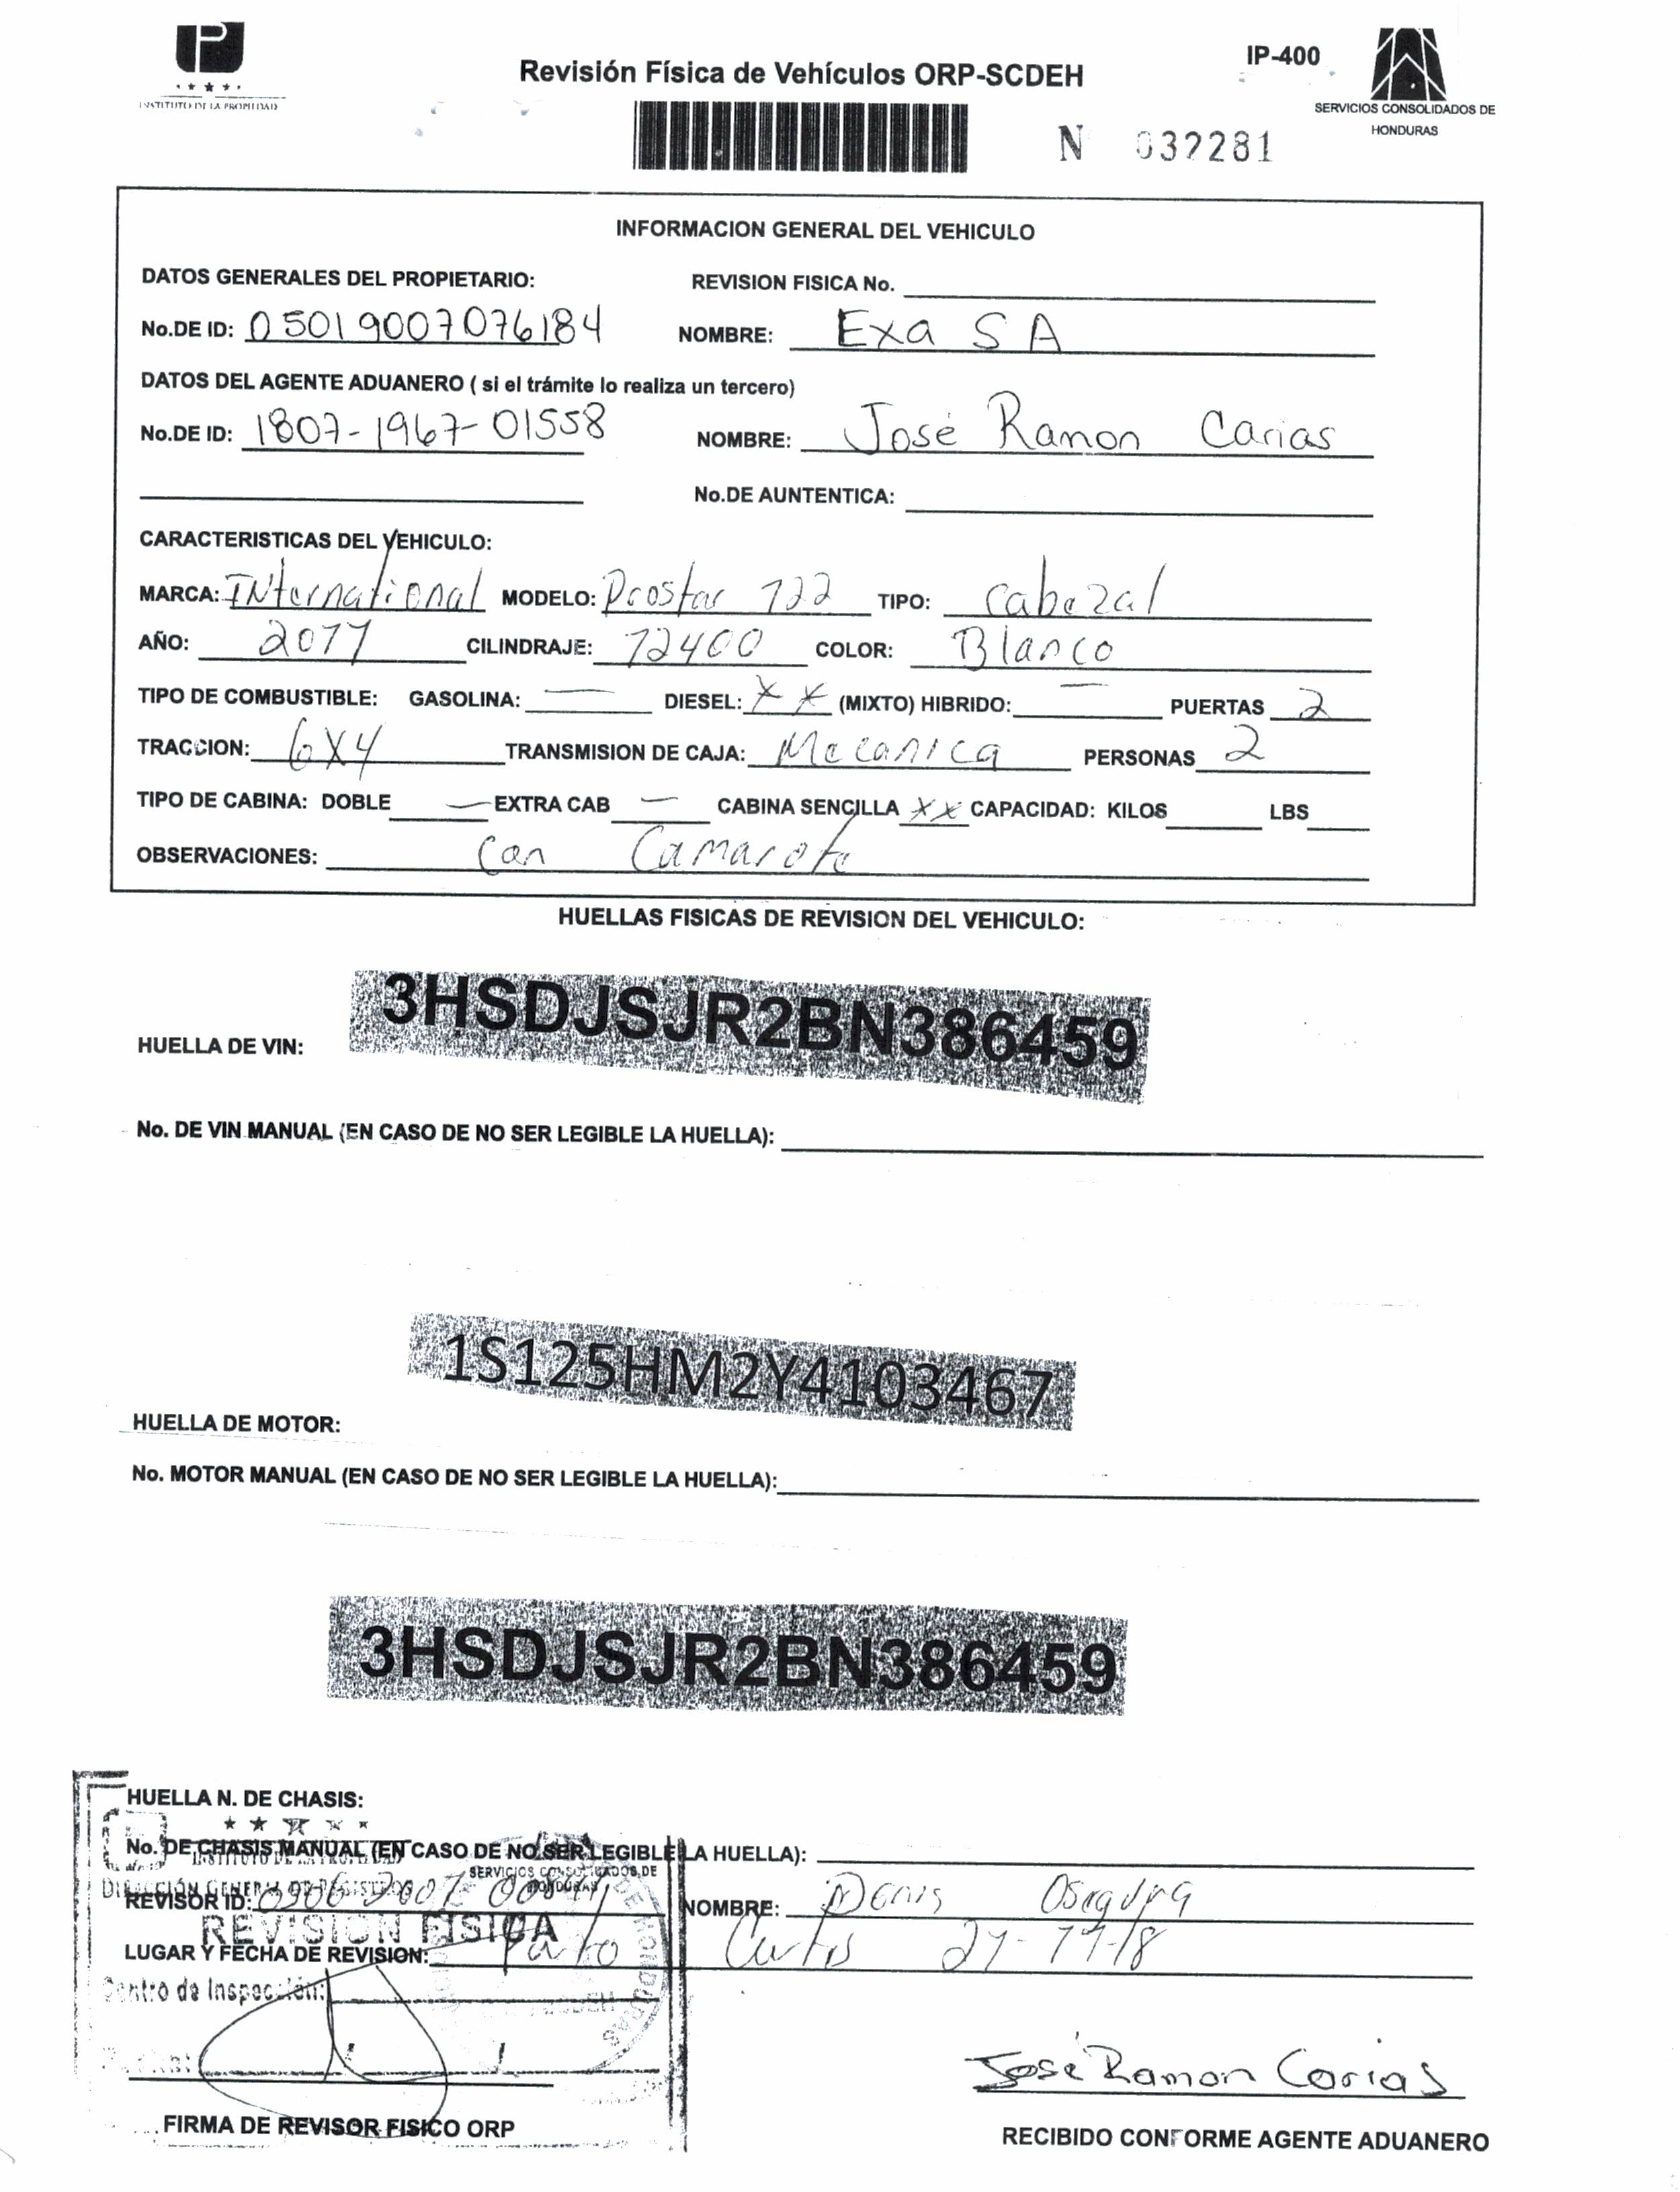 IP-400
Revisión Física de Vehículos ORP-SCDEH
INSTITUTO DE LA PROPIEDAD
SERVICIOS CONSOLIDADOS DE
HONDURAS
N 032281
INFORMACION GENERAL DEL VEHICULO
DATOS GENERALES DEL PROPIETARIO: REVISION FISICA No.
No.DE ID: 05019007076184 NOMBRE: Exa S A
DATOS DEL AGENTE ADUANERO ( si el trámite lo realiza un tercero)
No.DE ID: 1807-1967-01558 NOMBRE: José Ramon Carias
No.DE AUNTENTICA:
CARACTERISTICAS DEL VEHICULO:
MARCA: INternational MODELO: Prostar 122 TIPO: Cabezal
AÑO: 2011 CILINDRAJE: 12400 COLOR: Blanco
TIPO DE COMBUSTIBLE: GASOLINA: — DIESEL: X X (MIXTO) HIBRIDO: — PUERTAS 2
TRACCION: 6X4 TRANSMISION DE CAJA: Mecanica PERSONAS 2
TIPO DE CABINA: DOBLE — EXTRA CAB — CABINA SENCILLA XX CAPACIDAD: KILOS LBS
OBSERVACIONES: Con Camarote
HUELLAS FISICAS DE REVISION DEL VEHICULO:
3HSDJSJR2BN386459
HUELLA DE VIN:
No. DE VIN MANUAL (EN CASO DE NO SER LEGIBLE LA HUELLA):
1S125HM2Y4103467
HUELLA DE MOTOR:
No. MOTOR MANUAL (EN CASO DE NO SER LEGIBLE LA HUELLA):
3HSDJSJR2BN386459
HUELLA N. DE CHASIS:
No. DE CHASIS MANUAL (EN CASO DE NO SER LEGIBLE LA HUELLA):
INSTITUTO DE LA PROPIEDAD
SERVICIOS CONSOLIDADOS DE
HONDURAS
DIRECCIÓN GENERAL DE REGISTROS
REVISOR ID: NOMBRE: Denis Osegura
REVISION FISICA
LUGAR Y FECHA DE REVISION: Puerto Cortes 21-11-18
Centro de Inspección:
Fecha:
José Ramon Carias
FIRMA DE REVISOR FISICO ORP
RECIBIDO CONFORME AGENTE ADUANERO